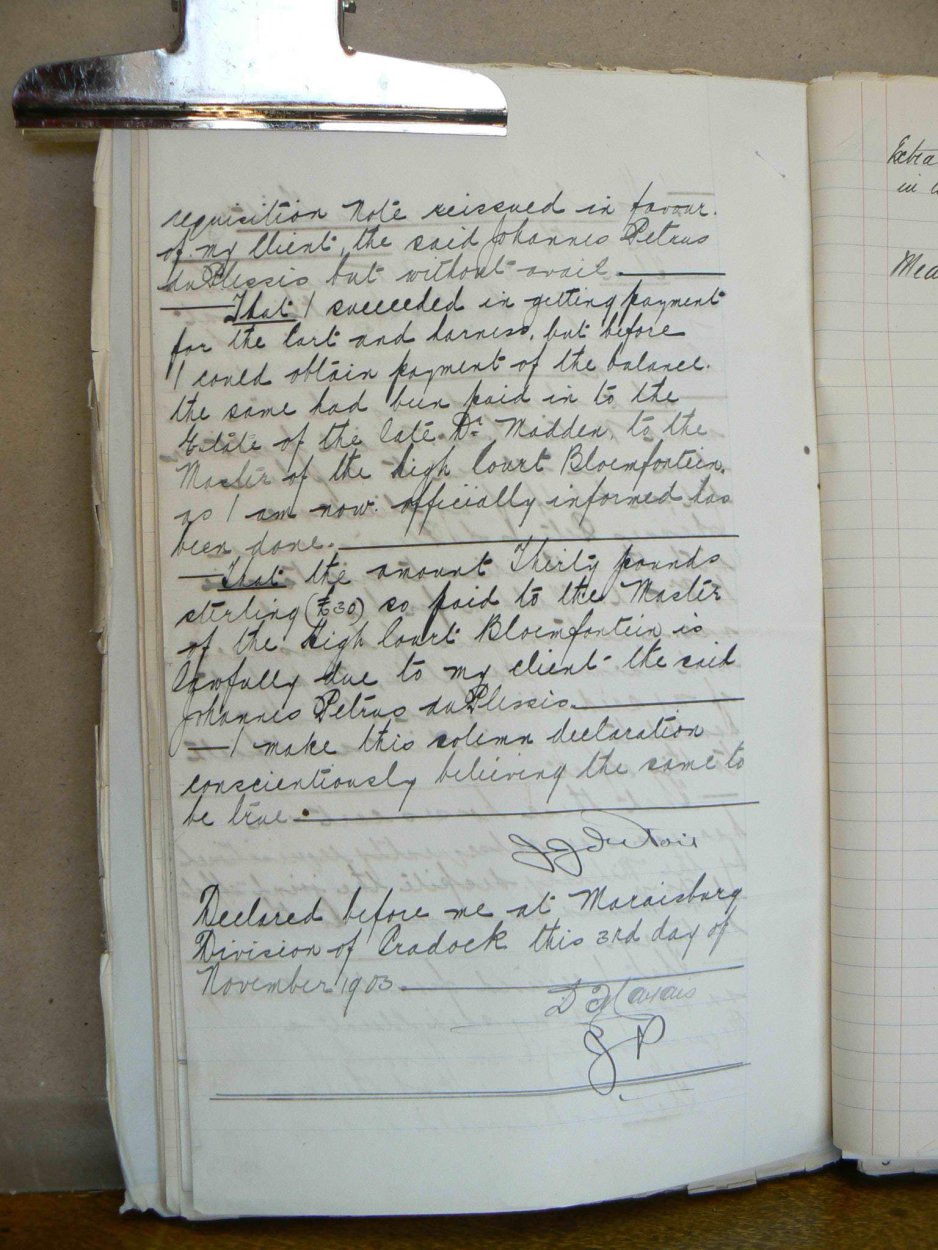 requisition Note reissued in favour.
of my Client, the said Johannes Petrus
du Plessis but without avail.
That I succeeded in getting payment
for the Cart and harness, but before
I could obtain payment of the balance.
the same had been paid in to the
Estate of the late Dr. Madden, to the
Master of the High Court Bloemfontein.
as I am now. officially informed has
been done.
That the amount Thirty pounds
sterling (£30) so paid to the Master
of the High Court Bloemfontein is
lawfully due to my client the said
Johannes Petrus du Plessis.
I make this solemn declaration
conscientiously believing the same to
be true
Declared before me at Maraisburg
Division of Cradock this 3rd day of
November 1903.
J P
Extra
in
Mea